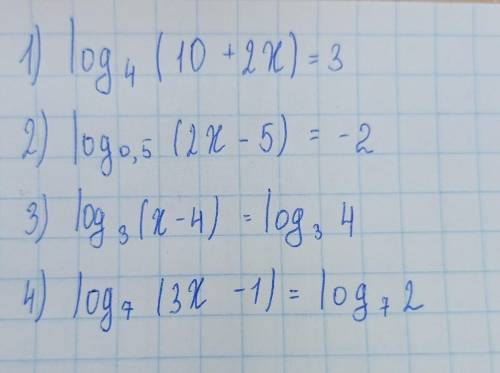 1) log₄ (10 + 2x) = 3
2) log₀,₅ (2x - 5) = -2
3) log₃ (x - 4) = log₃ 4
4) log₇ (3x - 1) = log₇ 2